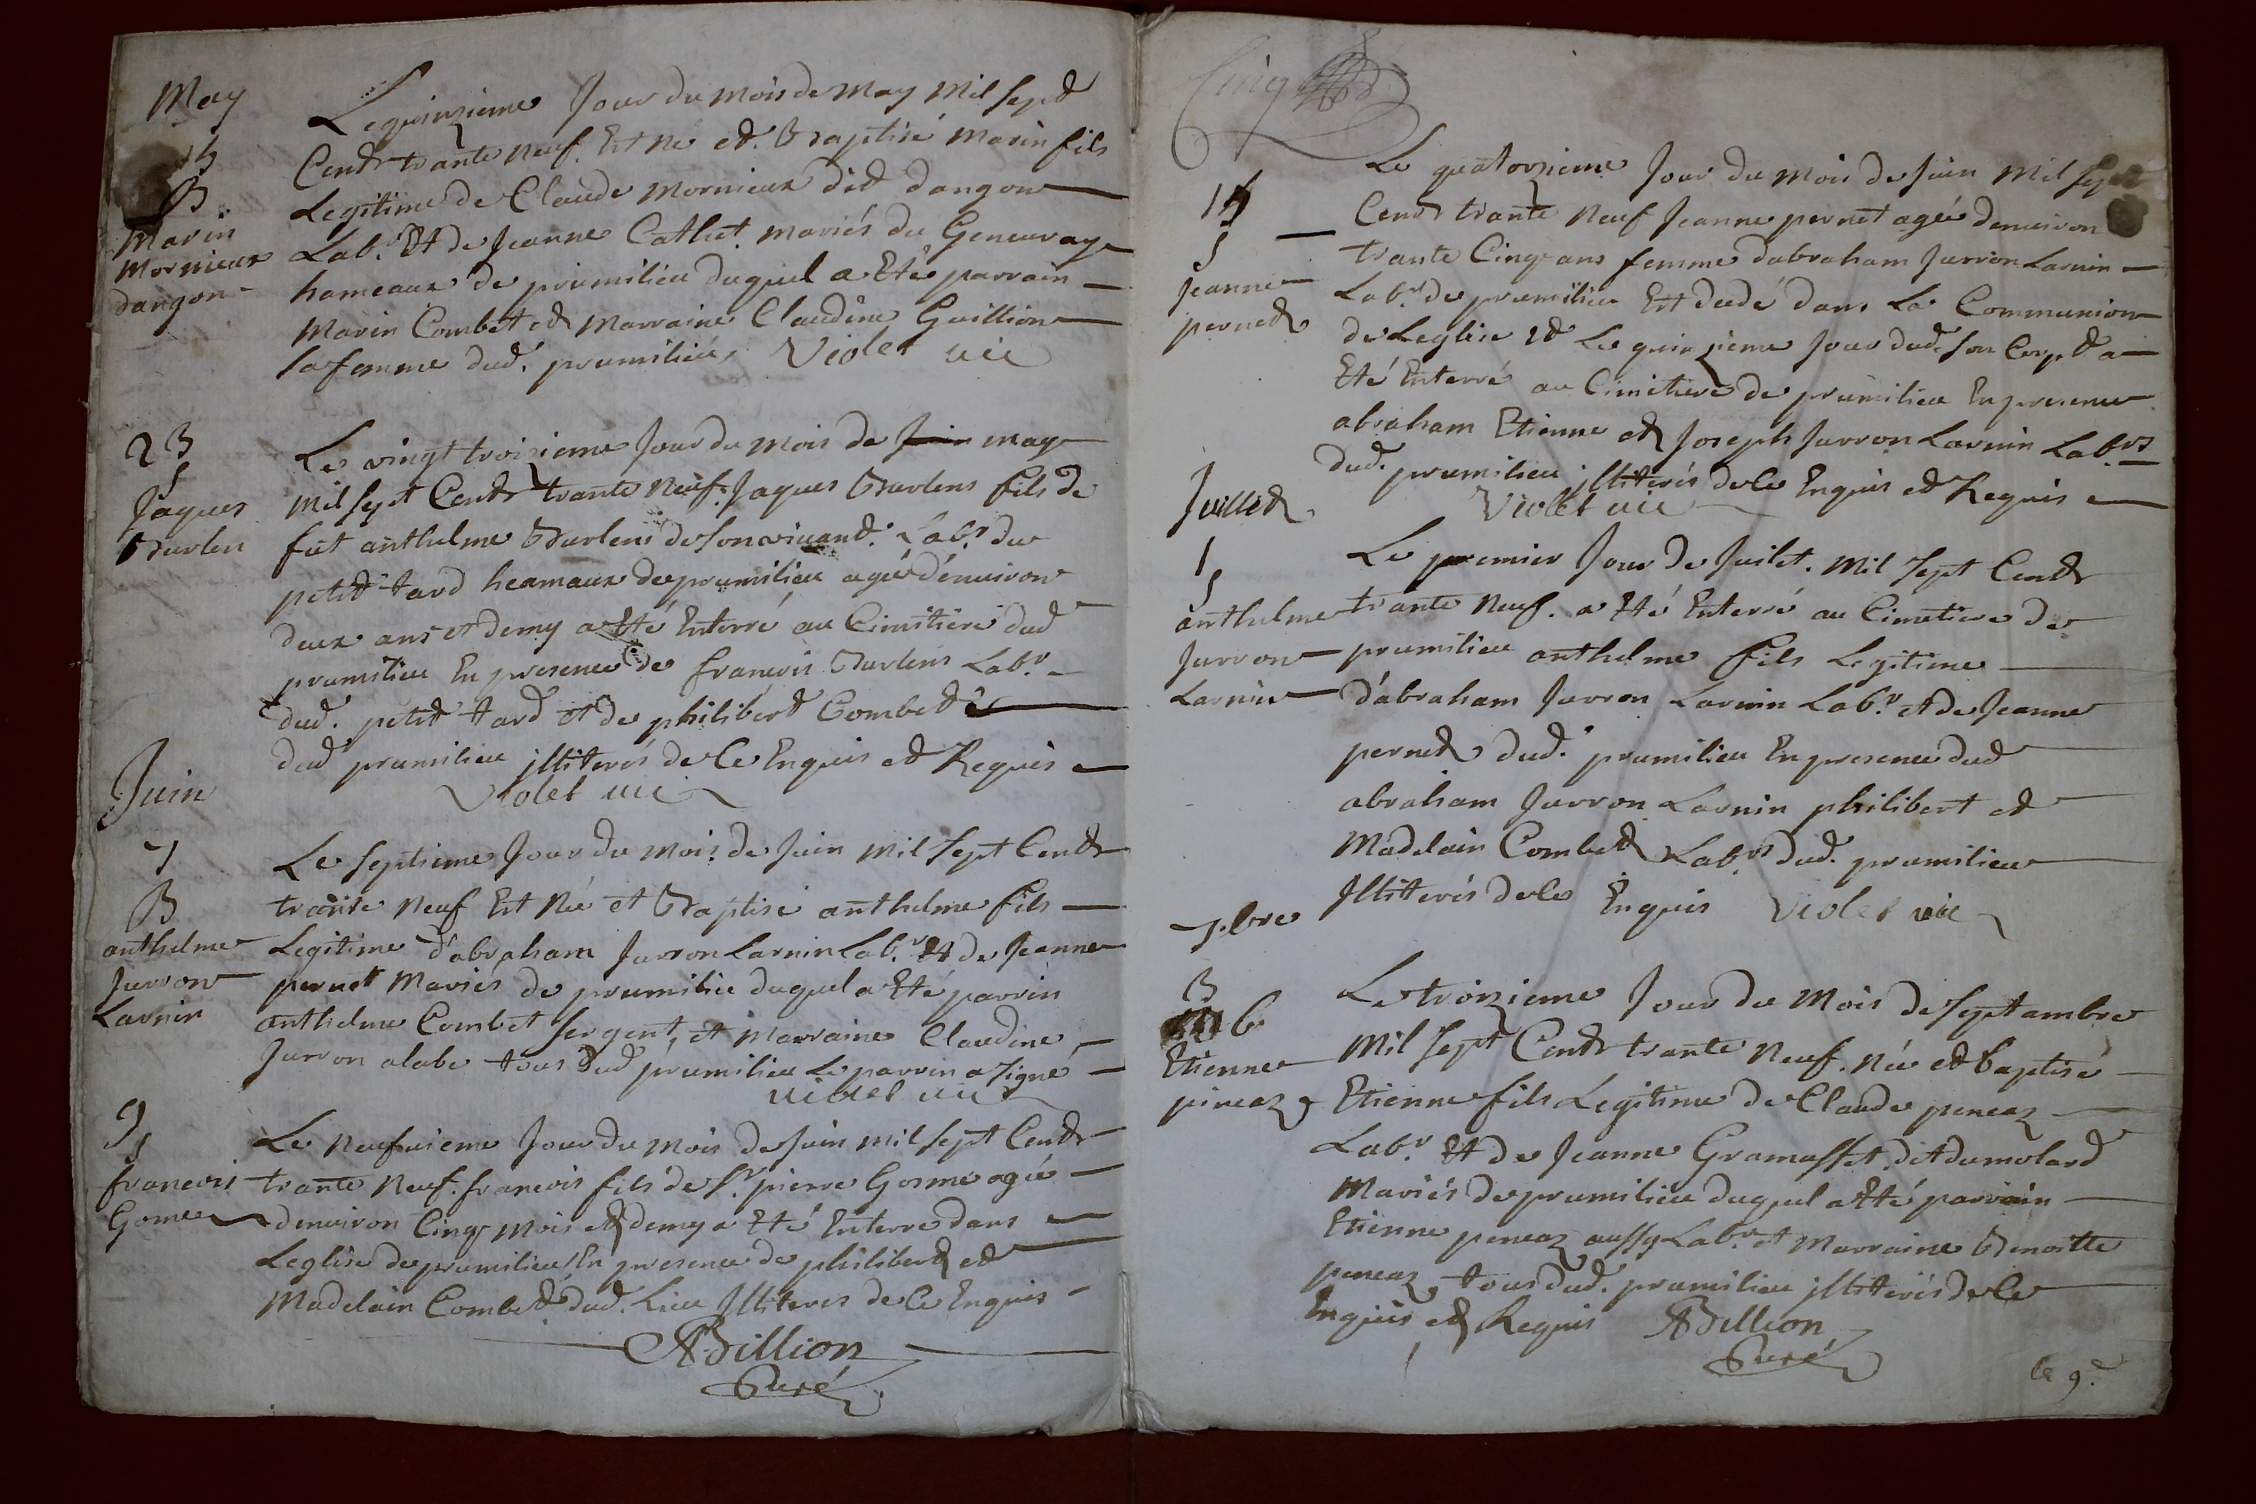 May
15
B
Marin
Mornieux
dangon
Le quinzieme Jour du mois de May Mil Sept
Cent trante Neuf. Est Né et. Baptisé Marin fils
Legitime de Claude Mornieux dit dangon
Lab.r Et de Jeanne Cathet mariés du Geneuray
hameaux de prumilieu duquel a Eté parrain
Marin Combet et Marraine Claudine Guillion
sa femme dud. prumilieu, Violet uic
23
S
Jaques
Burlen
Le vingt troisieme Jour du mois de Juin may
Mil Sept Cent trante Neuf. Jaques Burlens fils de
füt anthelme Burlens de son uiuant. Lab.r du
petit tard heamaux de prumilieu agé d'enuiron
deux ans et demy a Eté Enterré au Cimitiere dud
prumilieu En presence de francois Burlens Lab.r
dud. petit tard et de philibert Combet
dud prumilieu jlliterés de Ce Enquis et Requis
Violet uic
Juin
7
B
anthelme
Jurron
Larnin
Le septieme Jour du mois de Juin Mil Sept Cent
trante Neuf Est Né et Baptisé anthelme fils
Legitime d'abraham Jurron Larnin Lab.r Et de Jeanne
pernet Mariés de prumilieu duquel a Eté parrin
anthelme Combet sergent, et Marraine Claudine
Jurron alabe tous dud prumilieu Le parrin a signé
Violet uic
9
S
francois
Gome
Le Neufuieme Jour du Mois de Juin Mil Sept Cent
trante Neuf. francois fils de S.r pierre Gosme agé
denuiron Cinq Mois et demy a Eté Enterré dans
Leglise de prumilieu En presence de philibert et
Madelain Combet dud. Lieu Jlliterés de Ce Enquis
A Billion
Curé
Cinq
14
S
Jeanne
pernet
Le quatorzieme Jour du mois de Juin Mil Sept
Cent trante Neuf Jeanne pernet agée denuiron
trante Cinq ans femme dabraham Jurron Larnin
Lab.r de prumilieu Est dedé dans La Communion
de Leglise et Le quinzieme Jour dud. Son Corp a
Eté Enterré au Cimetiere de prumilieu En presence
abraham Etienne et Joseph Jurron Larnin Lab.rs
dud. prumilieu jlliterés de Ce Enquis et Requis
Violet uic
Juillet
1
S
anthelme
Jurron
Larnin
Le premier Jour de Juilet. Mil Sept Cent
trante Neuf. a Eté Enterré au Cimetiere de
prumilieu anthelme fils Legitime
d'abraham Jurron Larnin Lab.r et de Jeanne
pernet dud. prumilieu En presence dud
abraham Jurron Larnin philibert et
Madelain Combet Lab.rs dud. prumilieu
Jlliterés de Ce Enquis Violet uic
7.bre
13
b
Etienne
pineaz
Le troizieme Jour du Mois de Septambre
Mil Sept Cent trante Neuf. Née et baptisé
Etienne fils Legitime de Claude peneaz
Lab.r Et de Jeanne Gramasset dit dumolard
Mariés de prumilieu duquel a Eté parrain
Etienne peneaz aussy Lab.r et Marraine Benoitte
peneaz tous dud. prumilieu jlliterés de Ce
Enquis et Requis A Billion
Curé
le 9.e